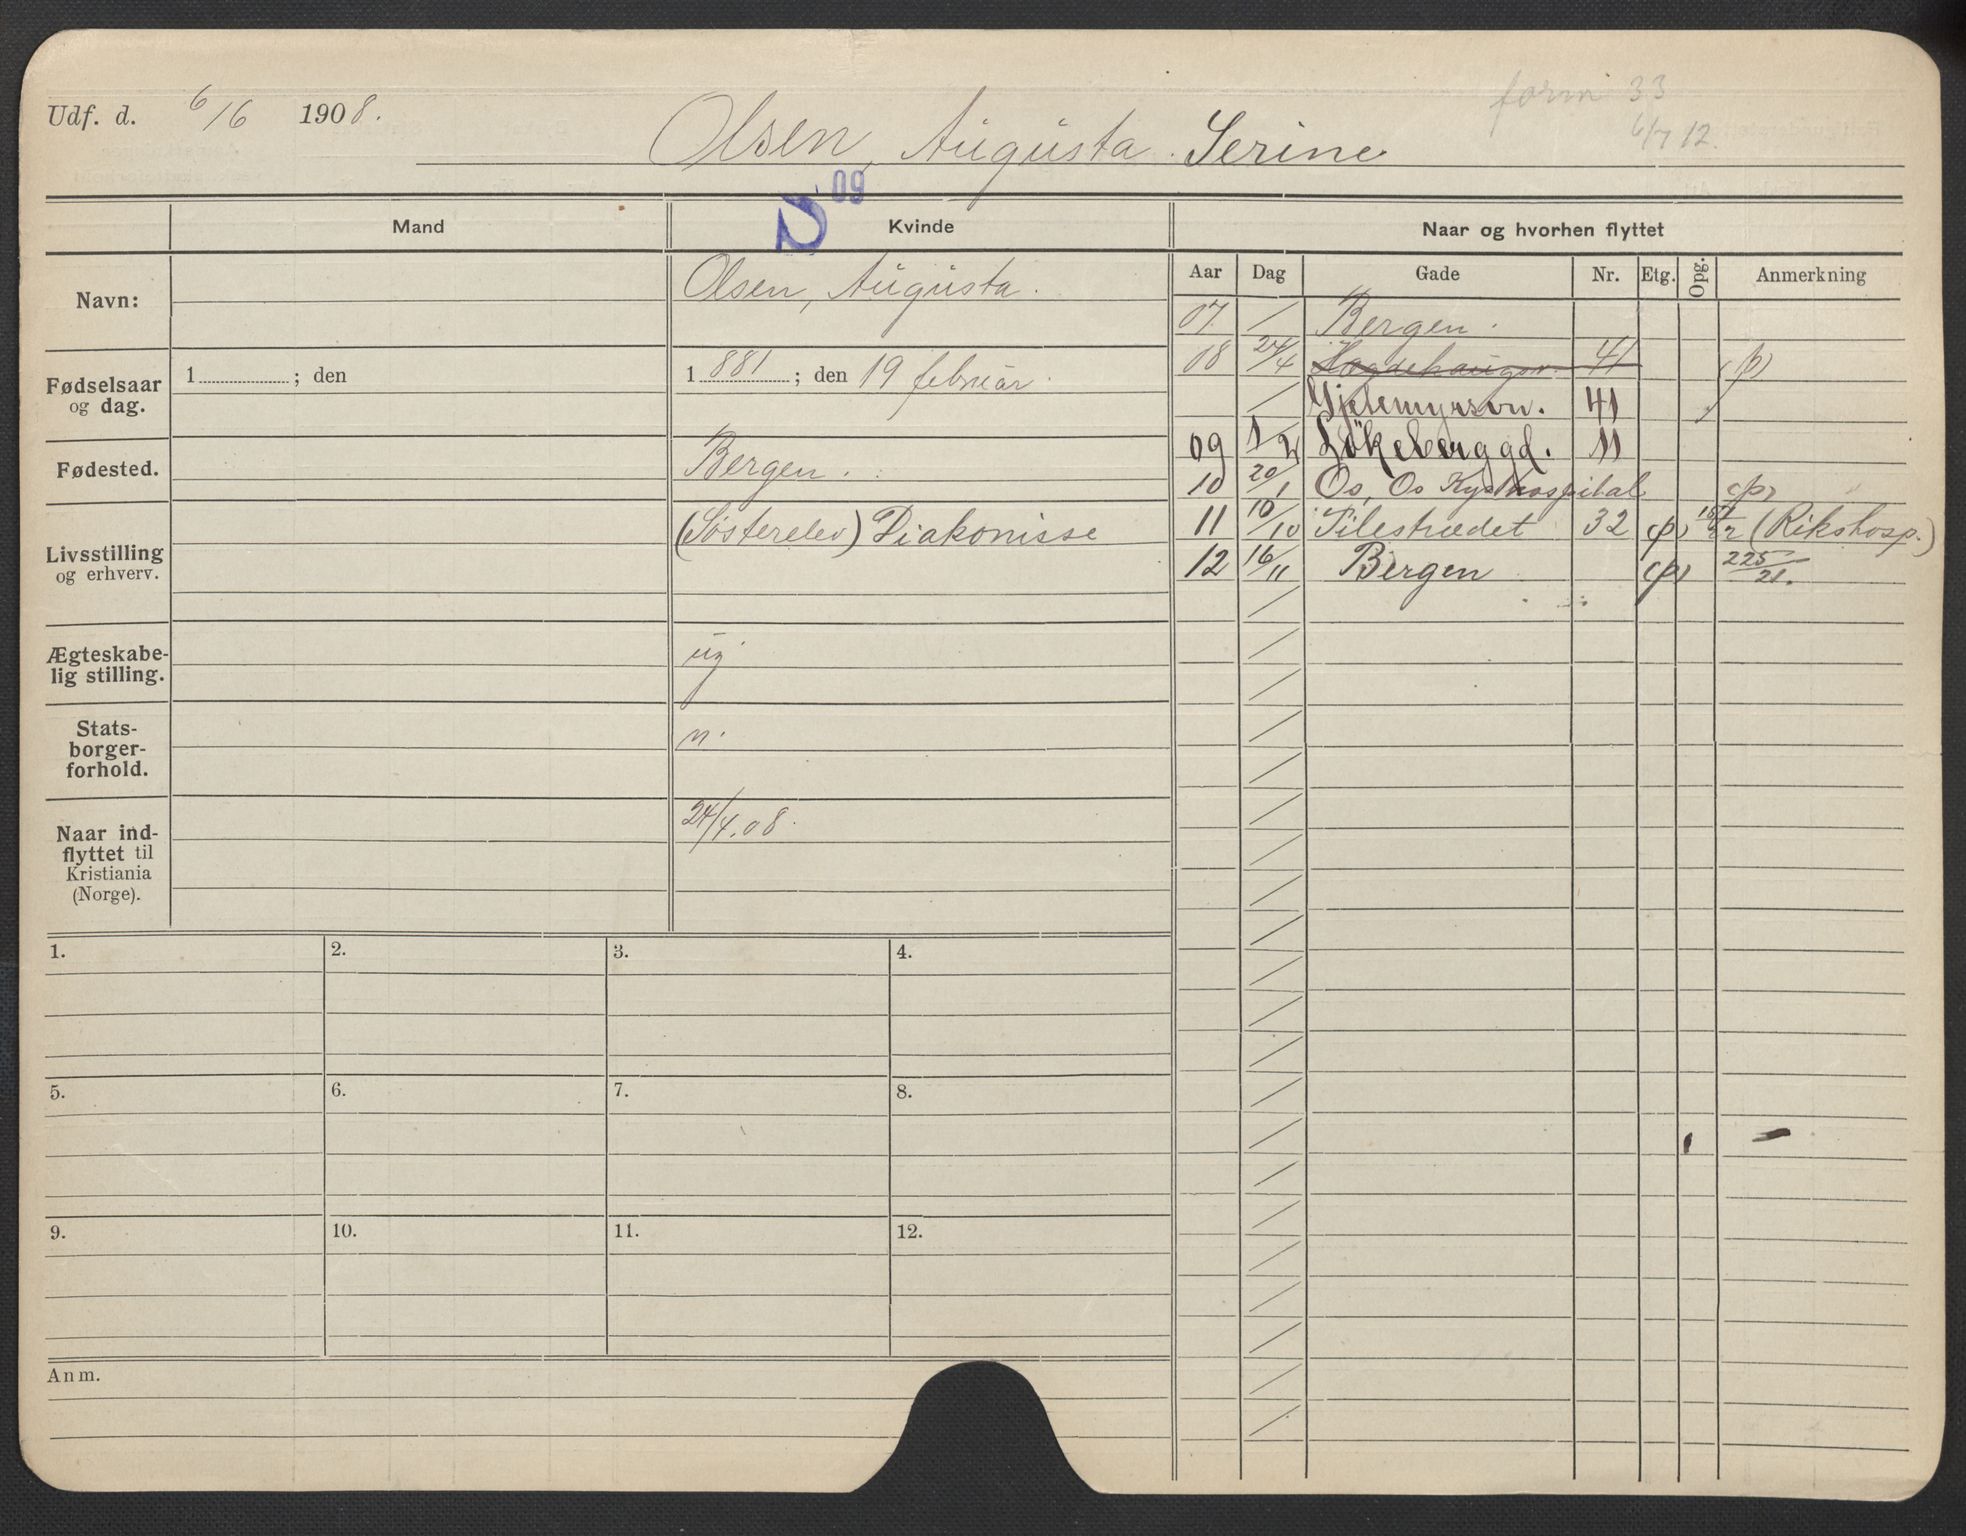 Udf. d. 6/16 1908.
form 33
6/7 12.
Olsen, Augusta Serine
09
Mand Kvinde Naar og hvorhen flyttet
Aar Dag Gade Nr. Etg. Opg. Anmerkning
Navn: Olsen, Augusta.
07. / Bergen.
08 24/4 Hægdehaugsv. 41 (p)
Fødselsaar og dag. 1 ; den 1881 ; den 19 februar.
/ Gjetemyrsvn. 41
09 1/2 Løkeberggd. 11
Fødested. Bergen.
10 20/1 Os, Os Kysthospital (p)
Livsstilling og erhverv. (Søsterelev) Diakonisse
11 10/10 Pilestrædet 32 (p) (Rikshosp.)
12 16/11 Bergen (p) 225/21.
Ægteskabe-
lig stilling. ug
Stats-
borger-
forhold. n.
Naar ind-
flyttet til
Kristiania
(Norge). 24/4.08.
1. 2. 3. 4.
5. 6. 7. 8.
9. 10. 11. 12.
Anm.